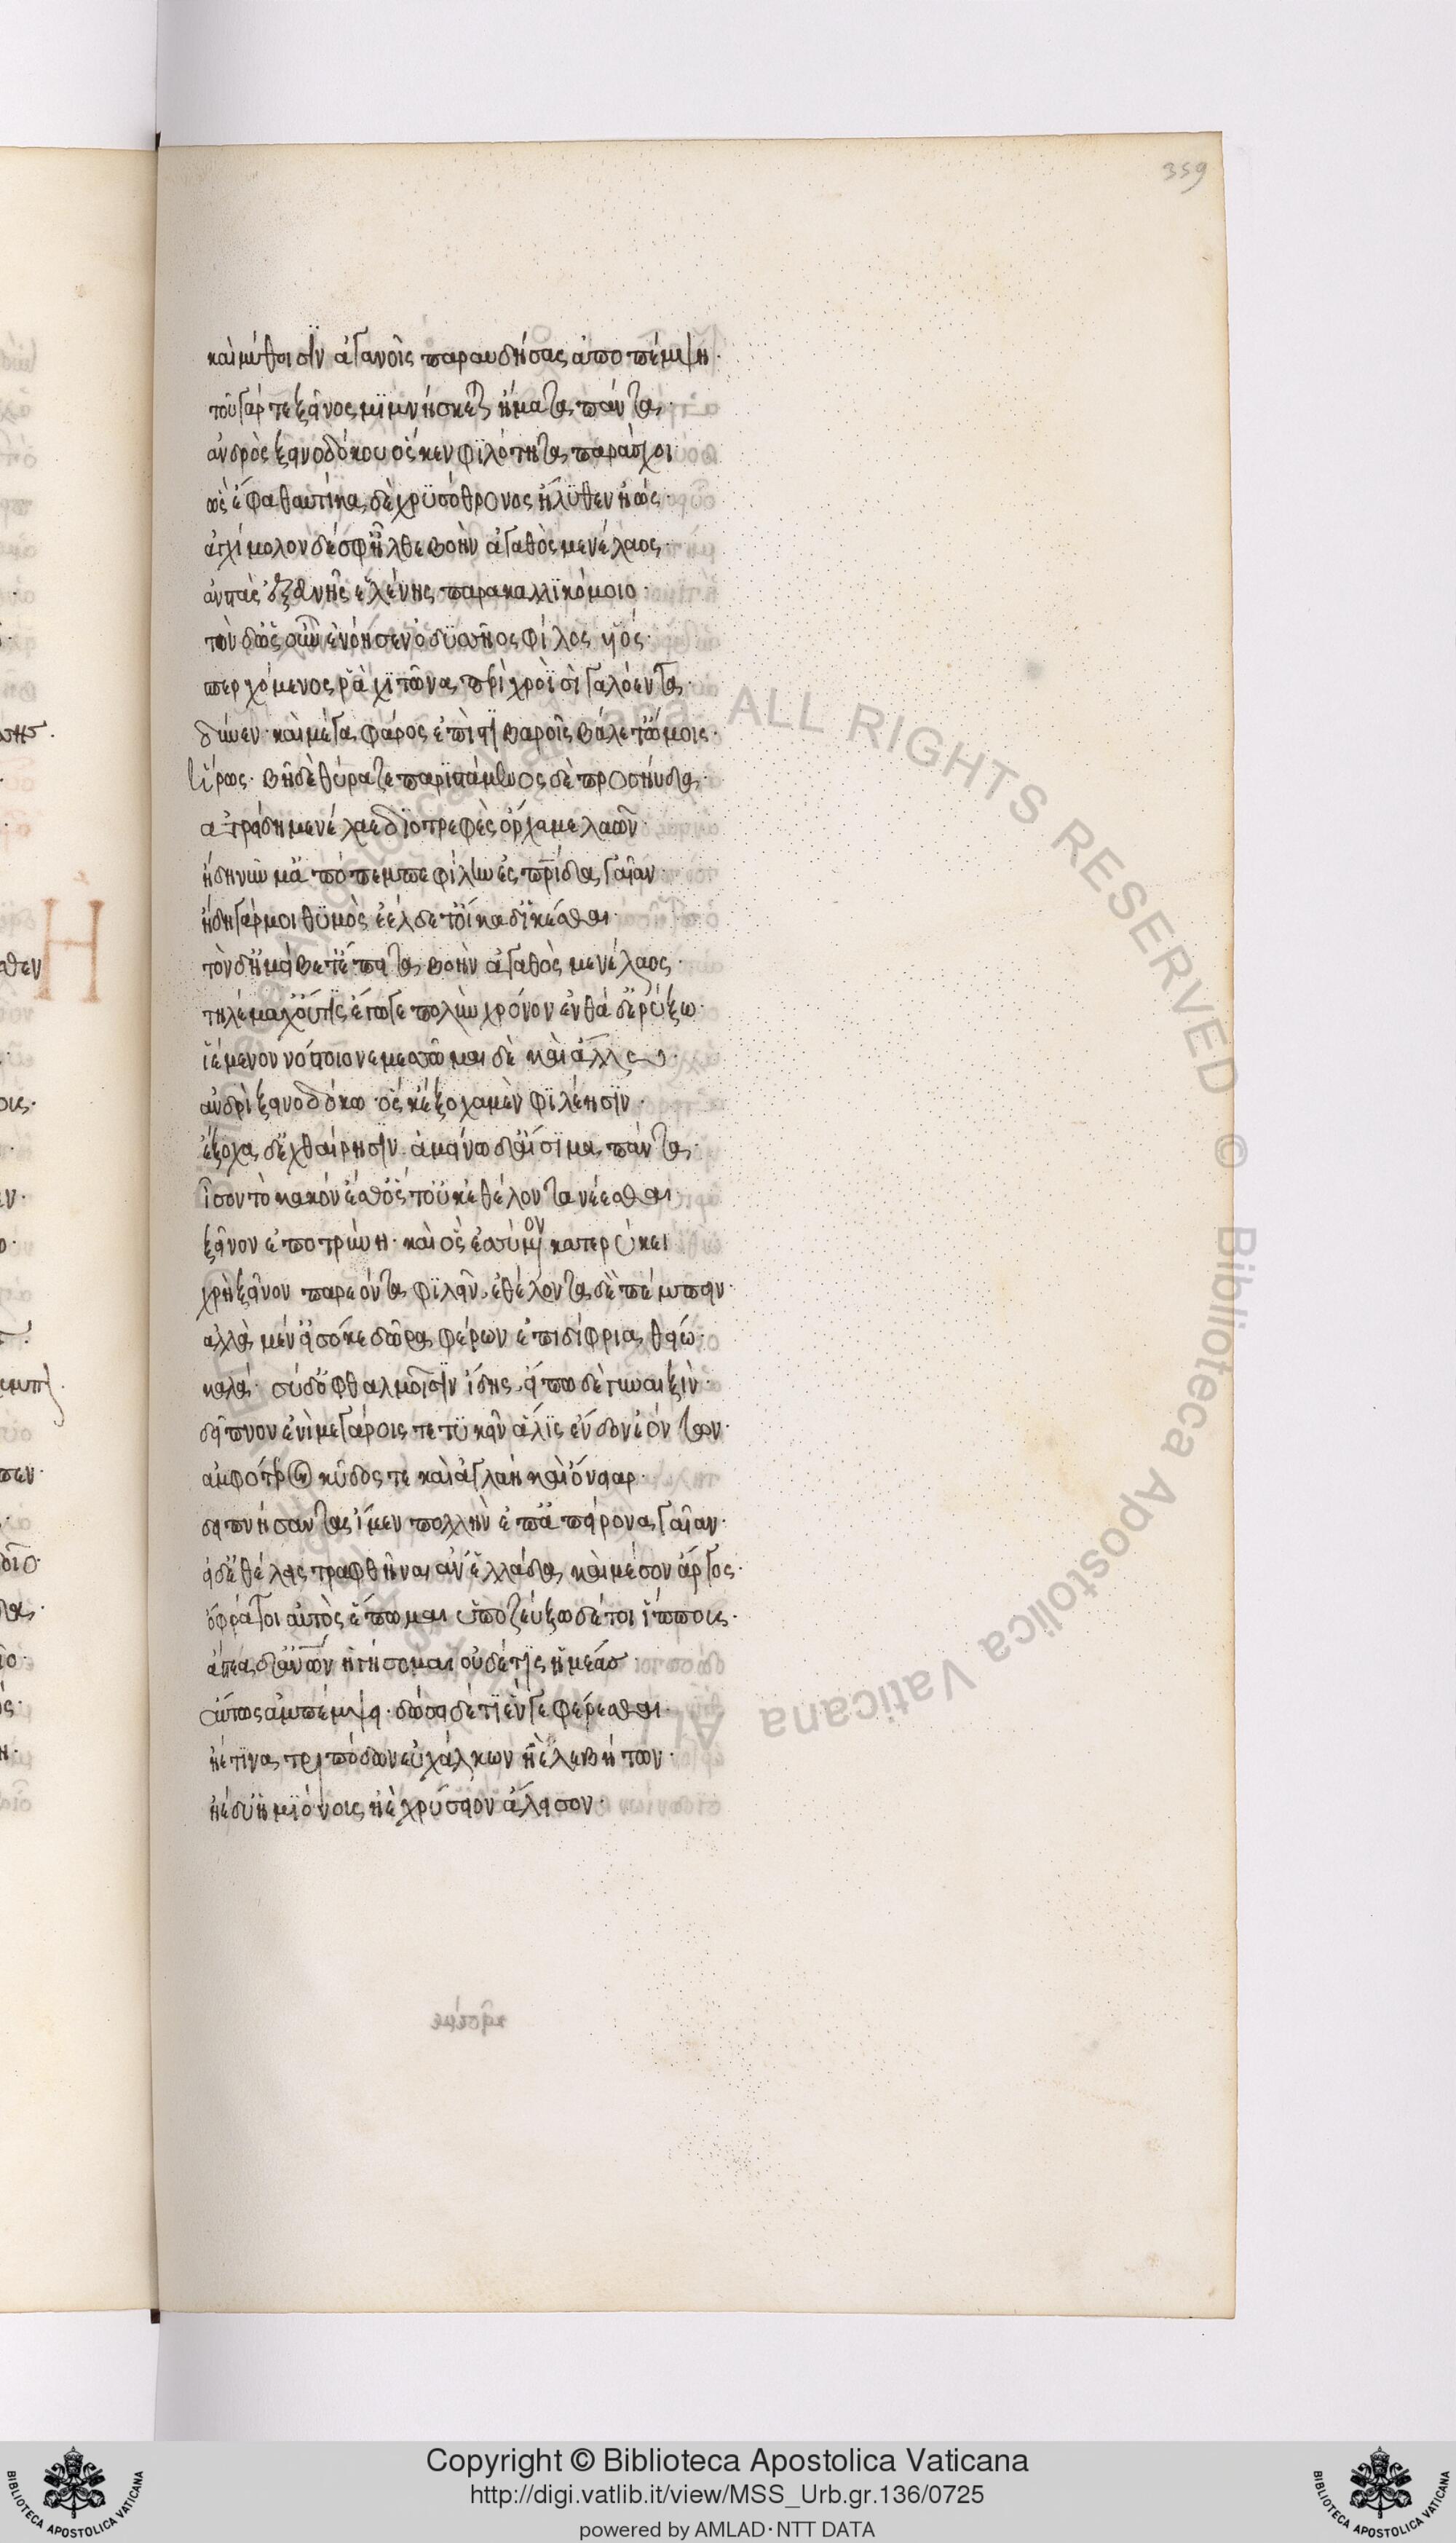 359
καὶ μύθοισϊν ἀγανοῖς παραυδήσας ἀποπέμψη·
τοῦ γάρ τε ξεῖνος μϊμνήσκεται ἤματα πάντα·
ἀνδρὸς ξεινοδόκου ὅς κεν φϊλότητα παράσχοι·
ὣς ἔφατ' αὐτίκα δὲ χρϋσόθρονος ἤλϋθεν ἠώς·
ἀγχίμολον δέ σφ' ἦλθε βοὴν ἀγαθὸς μενέλαος·
ἀνστὰς ἐξ εὐνῆς ἑλένης πάρα καλλϊκόμοιο·
τὸν δ' ὡς οὖν ἐνόησεν ὀδϋσσῆος φίλος υἱός·
σπερχόμενος ῥὰ χϊτῶνα περὶ χροῒ σϊγαλόεντα·
δῦνεν· καὶ μέγα φάρος ἐπὶ στϊβαροῖς βάλετ' ὤμοις·
ἥρως· βῆ δὲ θύραζε παρϊστάμενος δὲ προσηύδα·
ἀτρείδη μενέλαε δϊοτρεφὲς ὄρχαμε λαῶν·
ἤδη νῦν μ' ἀπόπεμπε φίλην ἐς πρίδα γαῖαν·
ἤδη γάρ μοι θϋμὸς ἐέλδεται οἴκαδ' ϊκέσθαι·
τὸν δ' ἠμείβετ' ἔπειτα βοὴν ἀγαθὸς μενέλαος·
τηλέμαχ' οὔτϊς ἔγωγε πολὺν χρόνον ἐνθάδ' ἐρύξω·
ϊέμενον νόστοιο νεμεσσῶμαι δὲ καὶ ἄλλω·
ἀνδρὶ ξεινοδόκω ὅς κ' ἔξοχα μὲν φϊλέησϊν·
ἔξοχα δ' ἐχθαίρησϊν· ἀμείνω δ' αἴσϊμα πάντα·
ἶσόν τὸ κακόν ἐσθ' ὅς τ' οὐκ ἐθέλοντα νέεσθαι·
ξεῖνον ἐποτρύνη· καὶ ὃς ἐσσύμενον κατερύκει
χρὴ ξεῖνον παρεόντα φϊλεῖν, ἐθέλοντα δὲ πέμπειν·
ἀλλὰ μέν' εἰσόκε δῶρα φέρων ἐπιδίφρια θείω·
καλά· σὺ δ' ὀφθαλμοῖσϊν ἴδης, εἴπω δὲ γυναιξὶν·
δεῖπνον ἐνὶ μεγάροις τετϋκεῖν ἅλϊς ἔνδον ἐόντων·
ἀμφότερον κῦδός τε καὶ ἀγλαΐη καὶ ὄνειαρ·
δειπνήσαντας ἴμεν πολλὴν ἐπ' ἀπείρονα γαῖαν·
εἰ δ' ἐθέλεις τραφθῆναι ἀν' ἑλλάδα καὶ μέσον ἄργος·
ὄφρα τοι αὐτὸς ἕπωμαι ὑποζεύξω δέ τοι ἵππους·
ἄστεα δ' ἀνθρώπων ἡγήσομαι οὐδέ τϊς ἡμέας
αὔτως ἀππέμψει· δώσει δέ τϊ ἕν γε φέρεσθαι·
ἠέ τινα τριπόδων εὐχάλκων ἠὲ λεβήτων·
ἠὲ δύ' ἡμϊόνους ἠὲ χρύσειον ἄλεισον·
Copyright © Biblioteca Apostolica Vaticana
http://digi.vatlib.it/view/MSS_Urb.gr.136/0725
powered by AMLAD·NTT DATA